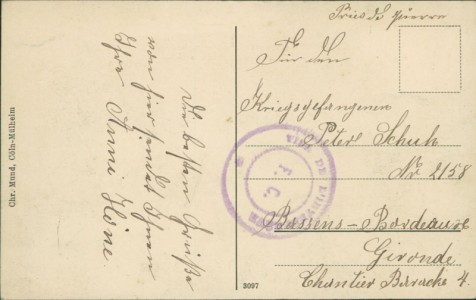 Die besten Grüße
von hier sendet Ihnen
Ihre Anni Höne
Chr. Mund, Cöln-Mülheim
3097
Pris de Guerre
Für den
Kriegsgefangenen
Peter Schuh
Nr 2158
Bassens-Bordeaux
Gironde
Chantier Baracke 4
DE